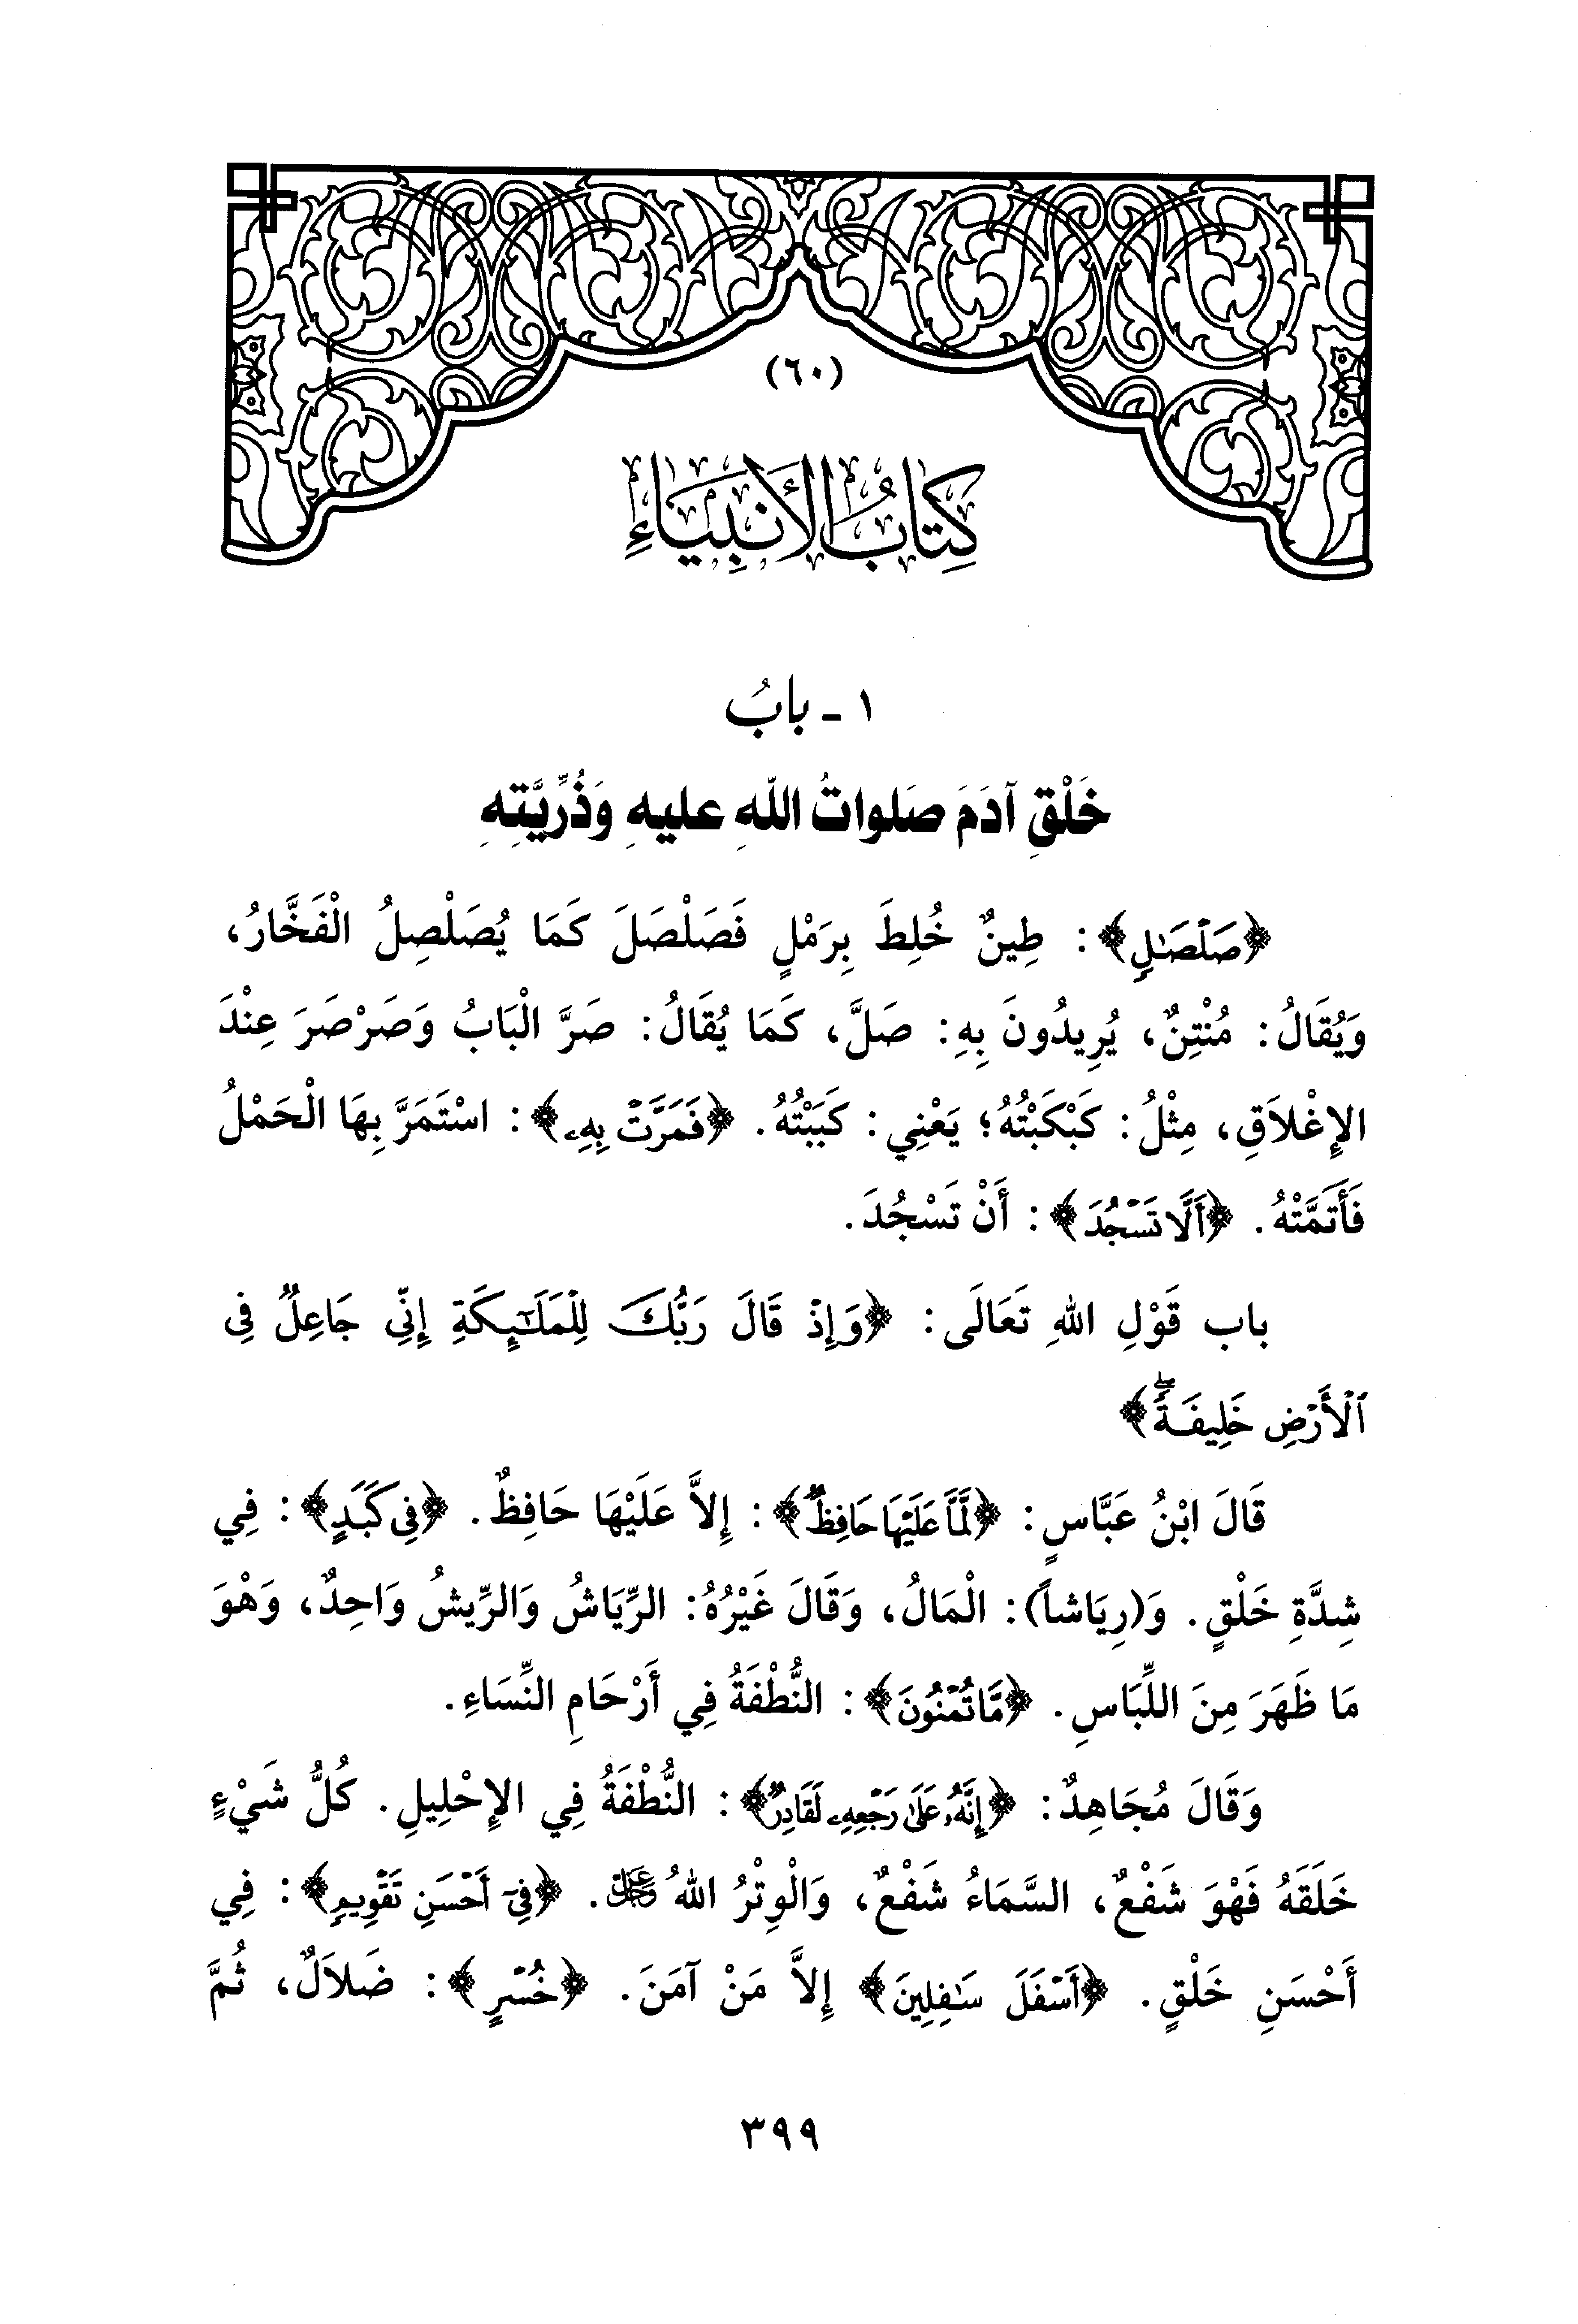 (٦٠)
كِتَابُ الأَنبِيَاءِ
١ - بابُ
خَلْقِ آدَمَ صَلواتُ اللّهِ عليهِ وَذُرِّيَّتِهِ
﴿صَلۡصَٰلٍ﴾: طِينٌ خُلِطَ بِرَمْلٍ فَصَلْصَلَ كَمَا يُصَلْصِلُ الْفَخَّارُ،
وَيُقَالُ: مُنْتِنٌ، يُرِيدُونَ بِهِ: صَلَّ، كَمَا يُقَالُ: صَرَّ الْبَابُ وَصَرْصَرَ عِنْدَ
الإِغْلاَقِ، مِثْلُ: كَبْكَبْتُهُ؛ يَعْنِي: كَبَبْتُهُ. ﴿فَمَرَّتۡ بِهِۦ﴾: اسْتَمَرَّ بِهَا الْحَمْلُ
فَأَتَمَّتْهُ. ﴿أَلَّا تَسۡجُدَ﴾: أَنْ تَسْجُدَ.
باب قَوْلِ اللهِ تَعَالَى: ﴿وَإِذۡ قَالَ رَبُّكَ لِلۡمَلَٰٓئِكَةِ إِنِّي جَاعِلٌ فِي
ٱلۡأَرۡضِ خَلِيفَةٗۖ﴾
قَالَ ابْنُ عَبَّاسٍ: ﴿لَّمَّا عَلَيۡهَا حَافِظٞ﴾: إِلاَّ عَلَيْهَا حَافِظٌ. ﴿فِي كَبَدٍ﴾: فِي
شِدَّةِ خَلْقٍ. وَ(رِيَاشاً): الْمَالُ، وَقَالَ غَيْرُهُ: الرِّيَاشُ وَالرِّيشُ وَاحِدٌ، وَهْوَ
مَا ظَهَرَ مِنَ اللِّبَاسِ. ﴿مَّا تُمۡنُونَ﴾: النُّطْفَةُ فِي أَرْحَامِ النِّسَاءِ.
وَقَالَ مُجَاهِدٌ: ﴿إِنَّهُۥ عَلَىٰ رَجۡعِهِۦ لَقَادِرٞ﴾: النُّطْفَةُ فِي الإِحْلِيلِ. كُلُّ شَيْءٍ
خَلَقَهُ فَهْوَ شَفْعٌ، السَّمَاءُ شَفْعٌ، وَالْوِتْرُ اللهُ عَزَّ وَجَلَّ. ﴿فِيٓ أَحۡسَنِ تَقۡوِيمٍ﴾: فِي
أَحْسَنِ خَلْقٍ. ﴿أَسۡفَلَ سَٰفِلِينَ﴾ إِلاَّ مَنْ آمَنَ. ﴿خُسۡرٍ﴾: ضَلاَلٌ، ثُمَّ
٣٩٩